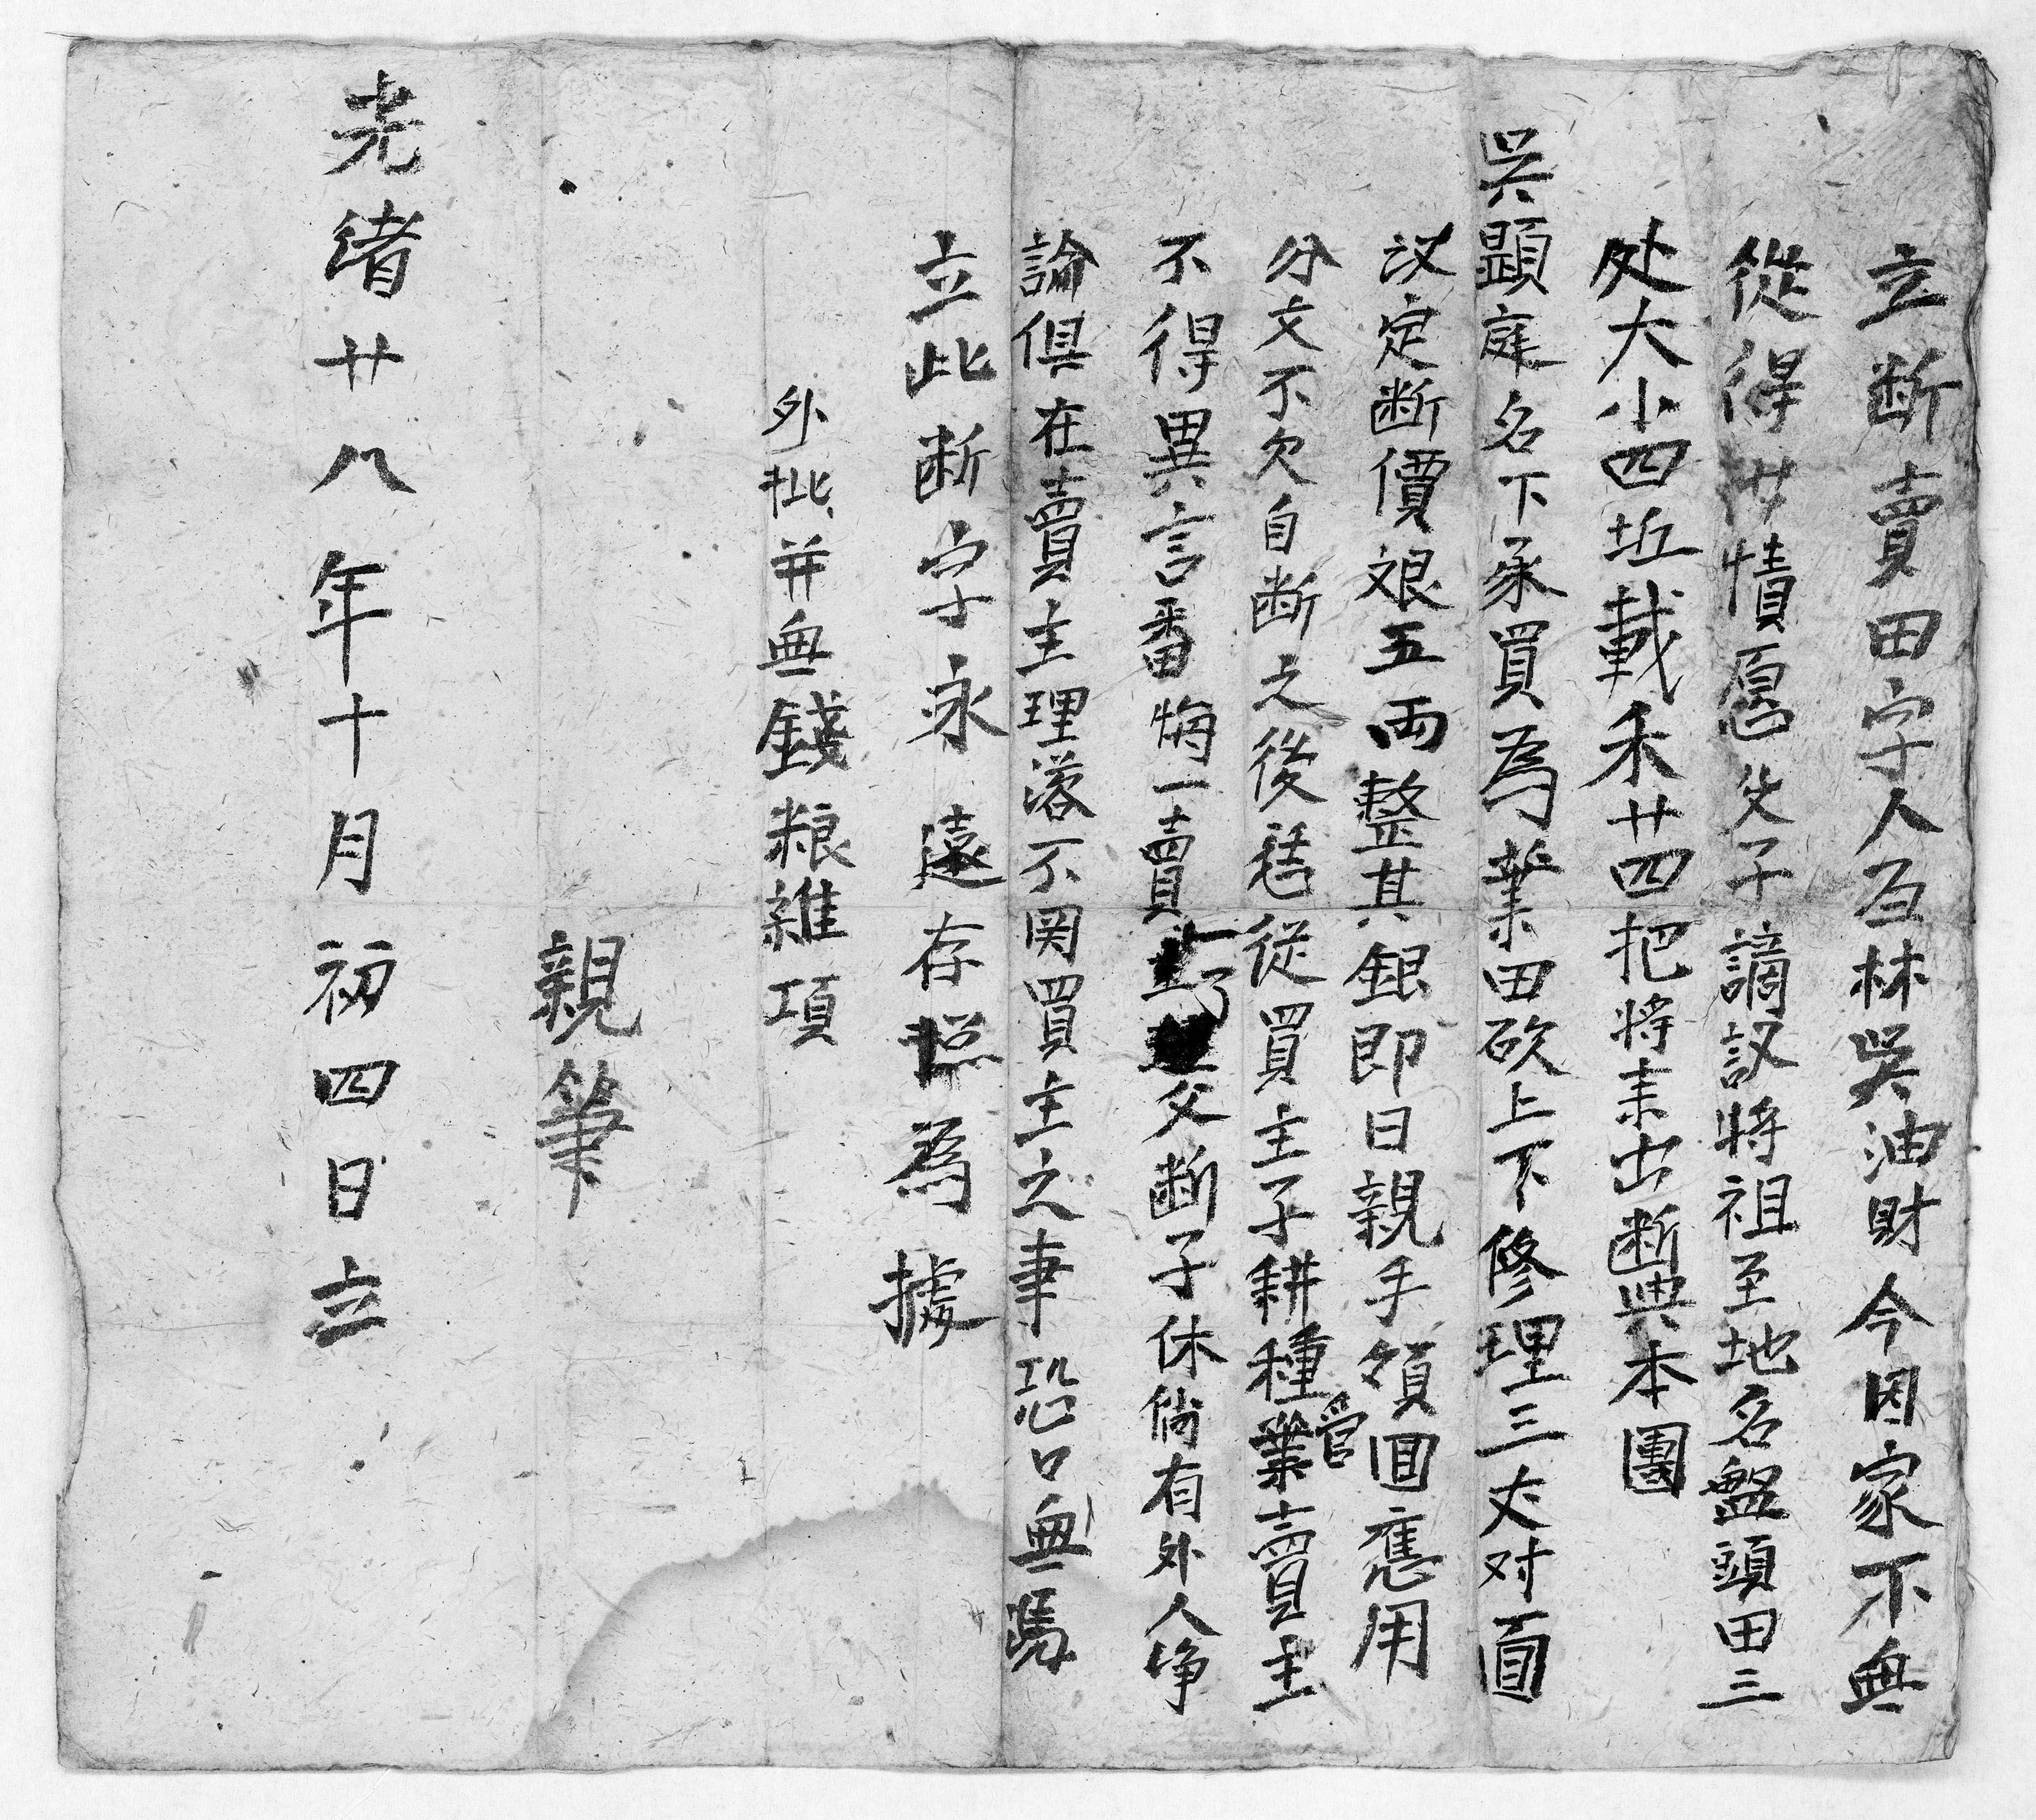 立断賣田字人百林吳油財今因家不無
從得廿情愿父子謫議將祖至地名盤頭田三
处大小四坵載禾廿四把將來出断與本團
吳顕庭名下承買為業田砍上下修理三丈对面
议定断價艮五両整其銀即日親手領囬應用
分文不欠自断之後恁從買主子耕種管業賣主
不得異言番悔一賣一了父断子休倘有外人争
論俱在賣主理落不関買主之事恐口無憑
立此断字永遠存照為據
外批並無錢粮雜項
親筆
光绪廿八年十月初四日立